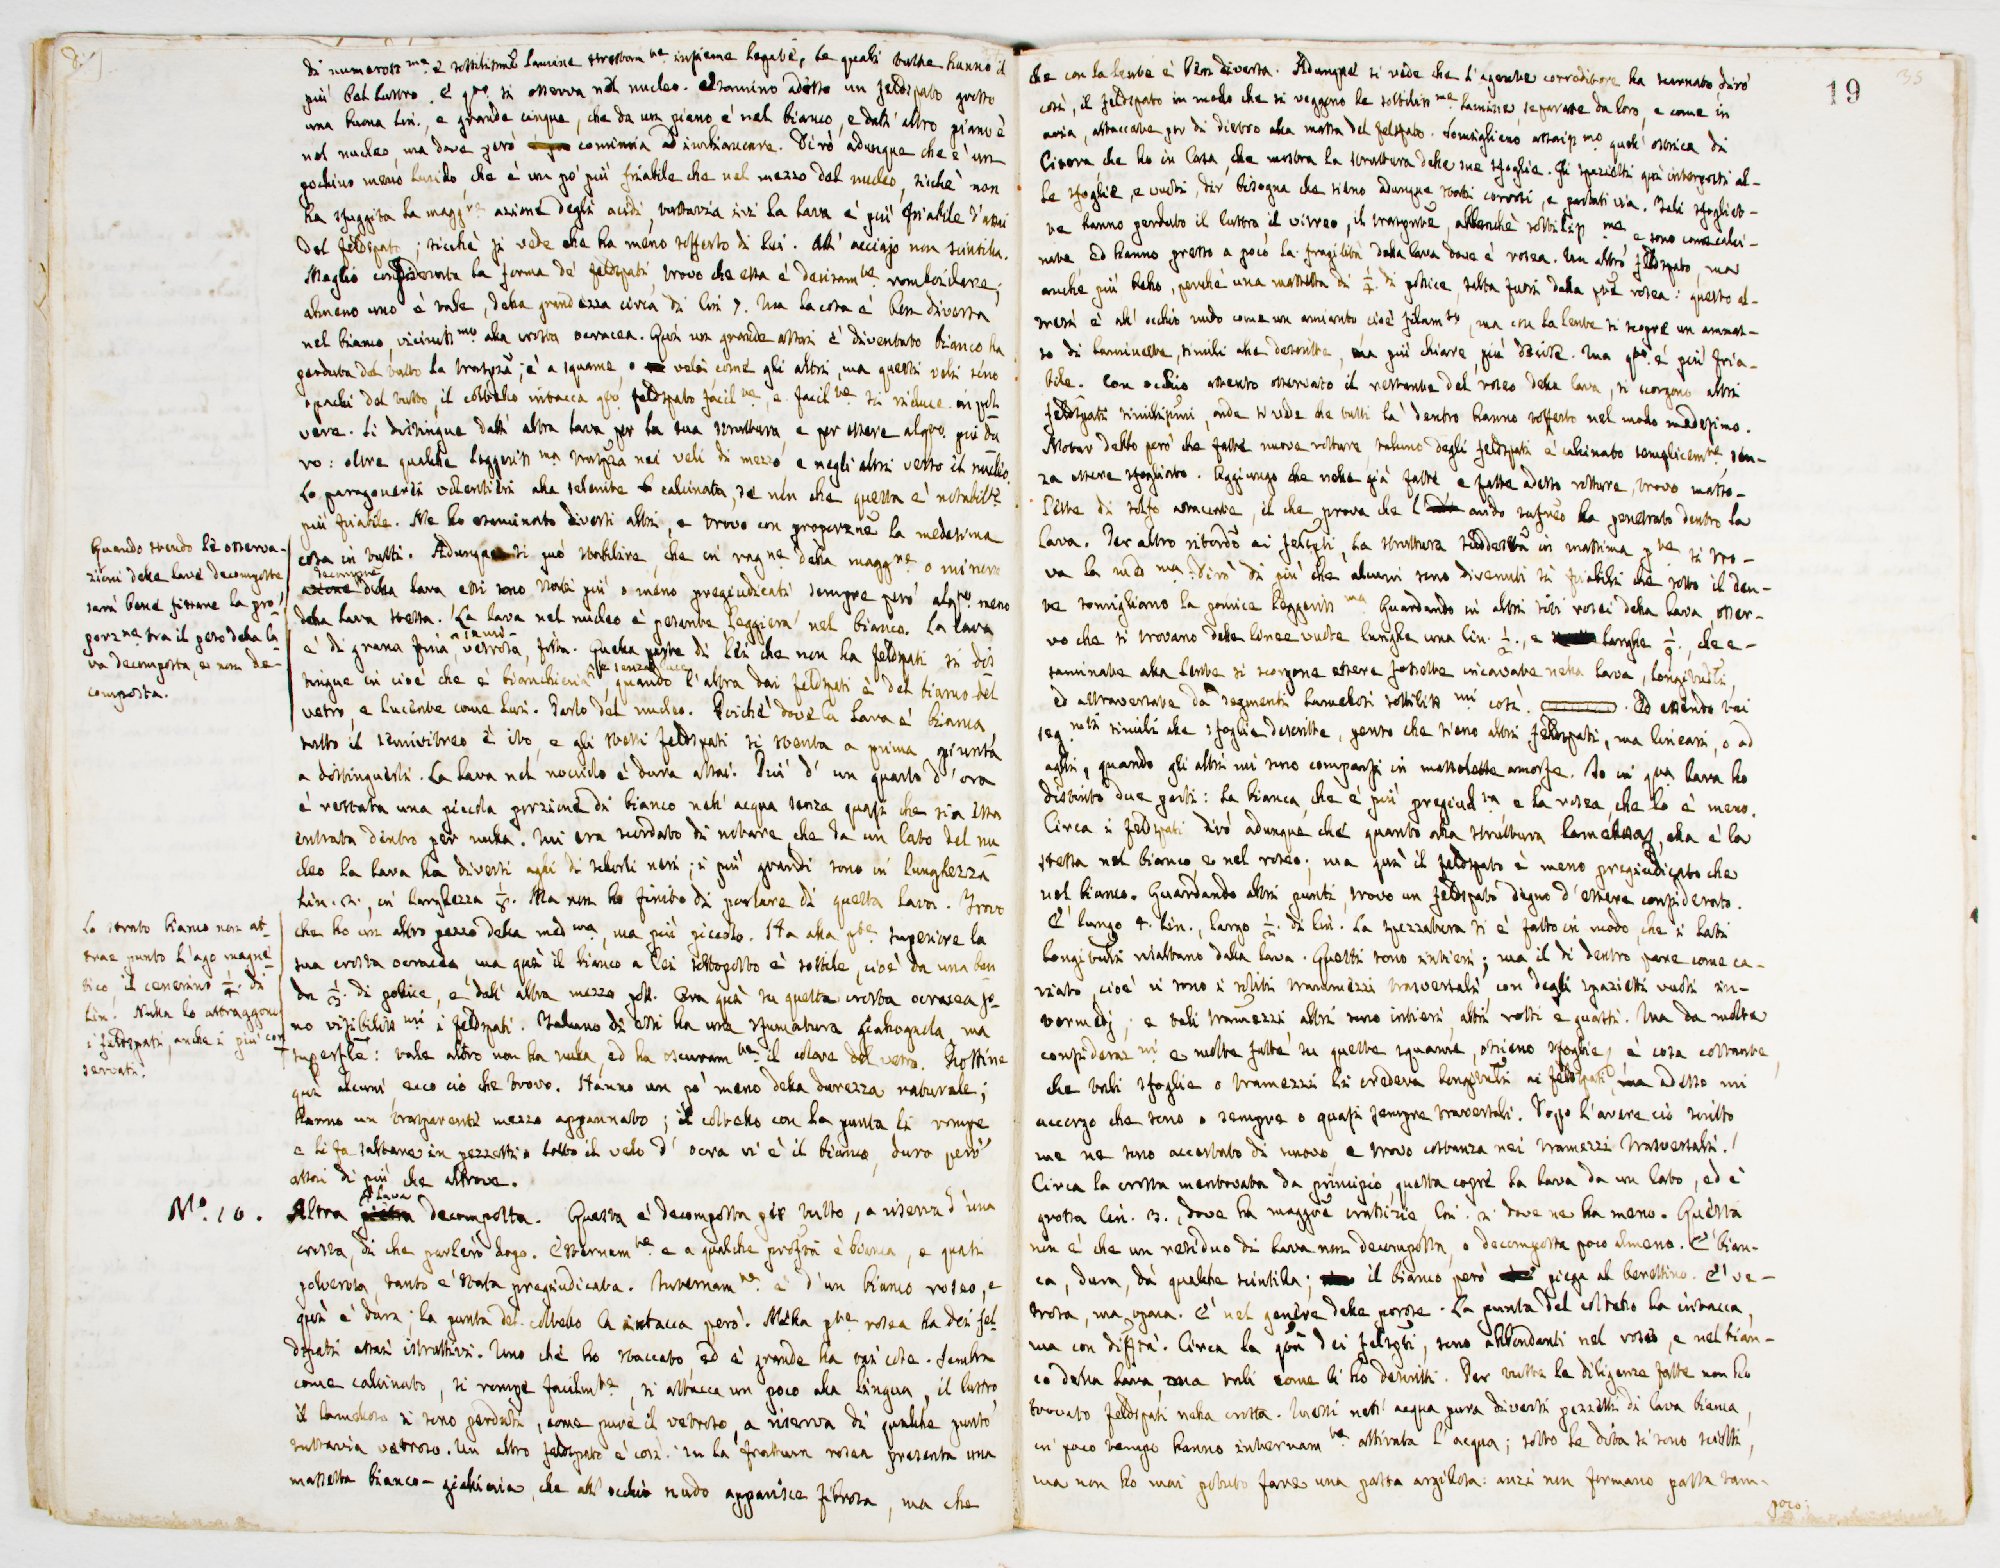 di numerosiss.me e sottilissime lamine strettam.te insieme legate, le quali tutte hanno il
più bel lustro. E q.to si osserva nel nucleo. Esamino adesso un feldspato grosso
una buona lin., e grande cinque, che da un piano è nel bianco, e dall' altro piano è
nel nucleo, ma dove però comincia ad imbiancare. Dirò adunque che è un
pochino meno lucido che è un po' più friabile che nel mezzo del nucleo, sicchè non
ha sfuggita la magg.re azione degli acidi, tuttavia ivi la lava è più friabile d'assai
del feldspato; sicchè si vede che ha meno sofferto di lui. All' acciajo non scintilla.
Meglio considerata la forma de' feldspati, trovo che essa è decisam.te romboidare;
almeno uno è tale, della grandezza circa di lin 7. Ma la cosa è ben diversa
nel bianco, viciniss.mo alla crosta ocracea. Qui un grande assai è diventato bianco ha
perduta del tutto la traspza; è a squame, o veli come gli altri, ma questi veli sono
opachi del tutto, il coltello intacca q.to feldspato facil.te, e facil.te si riduce in pol
vere. Si distingue dall' altra lava per la sua struttura, e per essere alq.to più du
ro: oltre qualche leggeriss.ma traspza nei veli di mezzo e negli altri verso il nucleo.
Lo paragonerei volentieri alla selenite calcinata, se non che questa è notabil.te
più friabile. Ne ho esaminato diversi altri, e trovo con proporzne la medesima
cosa in tutti. Adunque si può stabilire, che in rag.ne della magg.re o minore
decompne
della lava essi sono stati più o meno pregiudicati sempre però alq.to meno
della lava stessa. La lava nel nucleo è pesante leggiera nel bianco. La lava
è di grana fina, vetrosa, fitta. Quella parte di lei che non ha feldspati si dis
tingue in cioè che è bianchiccia e senza luce, quando l'altra dai feldspati è del bianco del
vetro, e lucente come lui. Parlo del nucleo. Poichè dove la lava è bianca,
tutto il semivitreo è ito, e gli stessi feldspati si stenta a prima giunta
a distinguerli. La lava nel nocciolo è dura assai. Più d' un quarto d' ora
è restata una piccola porzione di bianco nell' acqua senza quasi che sia essa
entrata dentro per nulla. Mi era scordato di notare che da un lato del nu
cleo la lava ha diversi aghi di schorli neri; i più grandi sono in lunghezza
lin. 2., in larghezza 1/3. Ma non ho finito di parlare di questa lava. Trovo
che ho un altro pezzo della med.ma, ma più piccolo. Ha alla p.te superiore la
sua crosta ocracea, ma quì il bianco a lei sottoposto è sottile, cioè da una ben
da 1/3. di pollice, e dall' altra mezzo poll. Ora quì su questa crosta ocracea so
no visibiliss.mi i feldspati. Taluno di essi ha una sfumatura gialognola, ma
superfle: tale altro non ha nulla, ed ha oscuram.te il colore del vetro. Rottine
quì alcuni, ecco ciò che trovo. Hanno un po' meno della durezza naturale;
hanno un trasparente mezzo appannato; il coltello con la punta li rompe
e li fa saltare in pezzetti; sotto il velo d' ocra vi è il bianco, duro però
assai di più che altrove.
Quando stendo le osserva-
zioni delle lave decomposte
sarà bene fissare la pro-
porz.ne tra il peso della la
va decomposta, e non de-
composta.
Lo strato bianco non at-
trae punto l'ago magne
tico il cenerino 1/4. di
lin. Nulla lo attraggono
i feldspati, anche i più con
servati.
N.o 10. Altra lava decomposta. Questa è decomposta per tutto, a riserva d' una
crosta, di che parlerò dopo. Esternam.te e a qualche profdtà è bianca, e quasi
polverosa, tanto è stata pregiudicata. Internam.te è d' un bianco roseo, e
quì è dura; la punta del coltello la intacca però. Nella p.te rosea ha dei fel
dspati assai istruttivi. Uno che ho staccato ed è grande ha tai cose. Sembra
come calcinato, si rompe facilm.te, si attacca un poco alla lingua, il lustro
il lamelloso si sono perduti, come pure il vetroso, a riserva di qualche punto
tuttavia vetroso. Un altro feldspato è così. Su la frattura rosea presenta una
massetta bianco-giallicia, che all' occhio nudo apparisce fibrosa, ma che
19
35
che con la lente è ben diversa. Adunque si vede che l' agente corroditore ha scarnato dirò
così, il feldspato in modo che si veggono le sottiliss.me lamine, separate da loro, e come in
aria, attaccate per di dietro alla massa del feldspato. Somigliano assaiss.mo quell' ostrica di
Citera che ho in Casa, che mostra la struttura delle sue sfoglie. Gli spazietti quì interposti al-
le sfoglie, e vuoti, dir bisogna che sieno adunque stati corrosi, e portati via. Tali sfogliet-
te hanno perduto il lustro il vitreo, il trasparte, abbenchè sottiliss.me e sono come calci-
nate. Ed hanno presso a poco la fragilità della lava dove è rosea. Un altro feldspato, ma
anche più bello, perchè una massetta di 1/4. di pollice, salta fuori dalla pte rosea: questo al-
tresì è all' occhio nudo come un amianto cioè filam.to, ma con la lente si scopre un ammas-
so di laminette, simili alle descritte, ma più chiare, più decise. Ma q.to è più fria-
bile. Con occhio attento osservato il restante del roseo della lava, si scorgono altri
feldspati similissimi, onde si vede che tutti là dentro hanno sofferto nel modo medesimo.
Notar debbo però che fatte nuove rotture, taluno degli feldspati è calcinato semplicem.te sen-
za essere sfogliato. Aggiungo che nelle già fatte e fatte adesso rotture, trovo masso-
lette di solfo aderente, il che prova che l' acido sulfueo ha penetrato dentro la
lava. Per altro riguardo ai felspti, la struttura suddetta in massima p.te si tro-
va la med.ma. Dirò di più che alcuni sono divenuti sì friabili che sotto il den-
te somigliano la pomice leggeriss.ma. Guardando in altri siti rosei della lava, osser-
vo che si trovano delle linee vuote lunghe una lin. 1/2., e larghe 1/9., che e-
saminate alla lente si scorgono essere fossette incavate nella lava, longitudli,
ed attraversate da segmenti lamelosi sottiliss.mi così. Ed essendo tai
seg.nti simili alle sfoglie descritte, penso che sieno altri feldspati, ma lineari, o ad
aghi, quando gli altri mi sono comparsi in massolette amorfe. Io in q.ta lava ho
distinto due parti: la bianca, che è più pregiud.ta, e la rosea, che lo è meno.
Circa i feldspati dirò adunque che quanto alla struttura lamellosa, ella è la
stessa nel bianco e nel roseo; ma quì il feldspato è meno pregiudicato che
nel bianco. Guardando altri punti, trovo un feldspato degno d' essere considerato.
E' lungo 4. lin., largo 1/2. di lin. La spezzatura si è fatto in modo, che i lati
longitudli risaltano dalla lava. Questi sono intieri; ma il di dentro pare come ca-
riato, cioè vi sono i soliti trammezzi trasversali con degli spazietti vuoti in-
termedj; e tali tramezzi altri sono intieri, altri rotti e guasti. Ma da molte
consideraz.ni e molte fatte su quelle squame, ossieno sfoglie, è cosa costante,
che tali sfoglie o tramezzi li credeva longitudli ai feldspati, ma adesso mi
accorgo che sono o sempre o quasi sempre traversali. Dopo l' avere ciò scritto
me ne sono accertato di nuovo, e trovo costanza nei tramezzi trasversali.
Circa la crosta mentovata da principio, questa copre la lava da un lato, ed è
grossa lin. 3., dove ha maggre crassizie, lin. 2. dove ne ha meno. Questa
non è che un residuo di lava non decomposta, o decomposta poco almeno. E' bian-
ca, dura, dà qualche scintilla; il bianco però piega al berettino. E' ve-
trosa, ma opaca. E' nel genere delle porose. La punta del coltello la intacca,
ma con diffltà. Circa la qtà dei felspti, sono abbondanti nel roseo, e nel bian-
co della lava, ma tali come li ho descritti. Per tutte le diligenze fatte non ho
trovato feldspati nella crosta. Messi nell' acqua pura diversi pezzetti di lava bianca,
in poco tempo hanno internam.te attirata l' acqua; sotto le dita si sono sciolti,
ma non ho mai potuto fare una pasta argilosa: anzi non formano pasta tam-
poco;